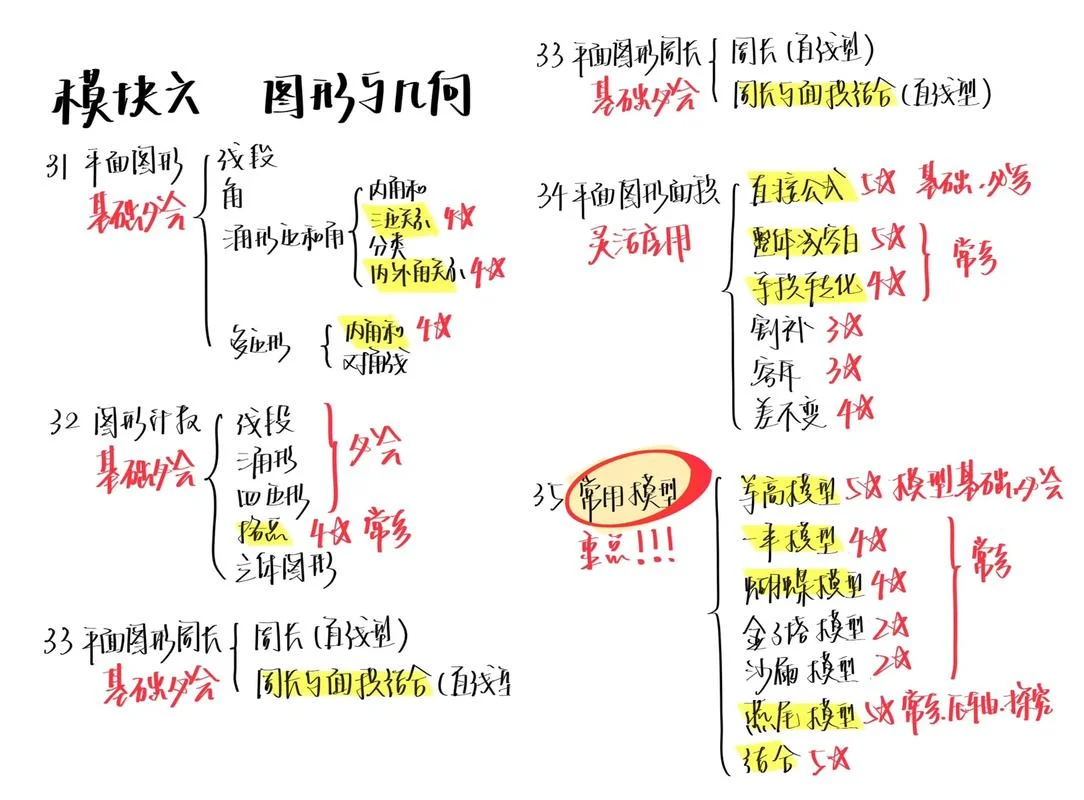 模块六 图形与几何
31 平面图形 基础必会
线段
角
三角形边和角
内角和
三边关系 4☆
分类
内外角关系 4☆
多边形
内角和 4☆
对角线
32 图形计数 基础必会
线段
三角形
四边形
必会
4☆ 常考
立体图形
33 平面图形周长 基础必会
周长(直线型)
周长与面积结合(直线型
33 平面图形周长 基础必会
周长(直线型)
周长与面积结合(直线型)
34 平面图形面积 灵活应用
直接公式 5☆ 基础.必考
整体减空白 5☆
等积转化 4☆
常考
割补 3☆
容斥 3☆
差不变 4☆
35 常用模型 重点!!!
等高模型 5☆ 模型基础.必会
一半模型 4☆
蝴蝶模型 4☆
常考
金字塔模型 2☆
沙漏模型 2☆
燕尾模型 5☆ 常考.压轴.探究
结合 5☆